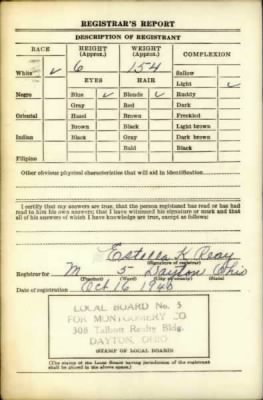 REGISTRAR'S REPORT
DESCRIPTION OF REGISTRANT
RACE HEIGHT (Approx.) WEIGHT (Approx.) COMPLEXION
6 154 Sallow
White ✓ EYES HAIR Light ✓
Negro Blue ✓ Blonde ✓ Ruddy
Gray Red Dark
Oriental Hazel Brown Freckled
Brown Black Light brown
Indian Black Gray Dark brown
Bald Black
Filipino
Other obvious physical characteristics that will aid in identification
I certify that my answers are true; that the person registered has read or has had
read to him his own answers; that I have witnessed his signature or mark and that
all of his answers of which I have knowledge are true, except as follows:
Estella K Reay
(Signature of registrar)
Registrar for M 5 Dayton Ohio
(Precinct) (Ward) (City or county) (State)
Date of registration Oct 16 1940
LOCAL BOARD No. 5
FOR MONTGOMERY CO
308 Talbott Realty Bldg.
DAYTON, OHIO
(STAMP OF LOCAL BOARD)
(The stamp of the Local Board having jurisdiction of the registrant
shall be placed in the above space.)